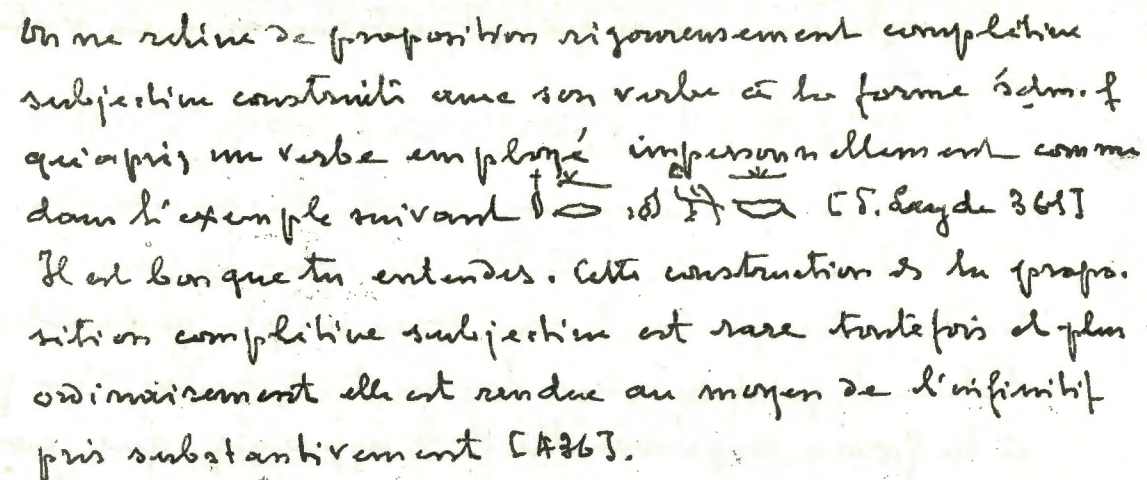 On ne relève de proposition rigoureusement complétive
subjective construite avec son verbe à la forme śḏm.f
qu'après un verbe employé impersonnellement comme
dans l'exemple suivant [S. Leyde 361]
Il est bon que tu entendes. Cette construction de la propo.
sition complétive subjective est rare toutefois et plus
ordinairement elle est rendue au moyen de l'infinitif
pris substantivement [A36].